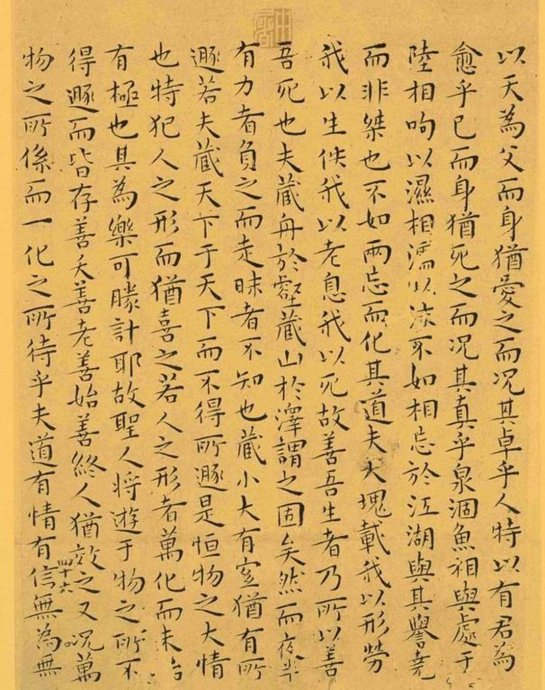 以天為父而身猶愛之而况其卓乎人特以有君為
愈乎己而身猶死之而况其真乎泉涸魚相與處于
陸相呴以濕相濡以沫不如相忘於江湖與其譽堯
而非桀也不如兩忘而化其道夫大塊載我以形勞
我以生佚我以老息我以死故善吾生者乃所以善
吾死也夫藏舟於壑藏山於澤謂之固矣然而夜半
有力者負之而走昧者不知也藏小大有宜猶有所
遯若夫藏天下于天下而不得所遯是恒物之大情
也特犯人之形而猶喜之若人之形者萬化而未始
有極也其為樂可勝計耶故聖人將遊于物之所不
得遯而皆存善夭善老善始善終人猶效之又况萬
四十六
物之所係而一化之所待乎夫道有情有信無為無